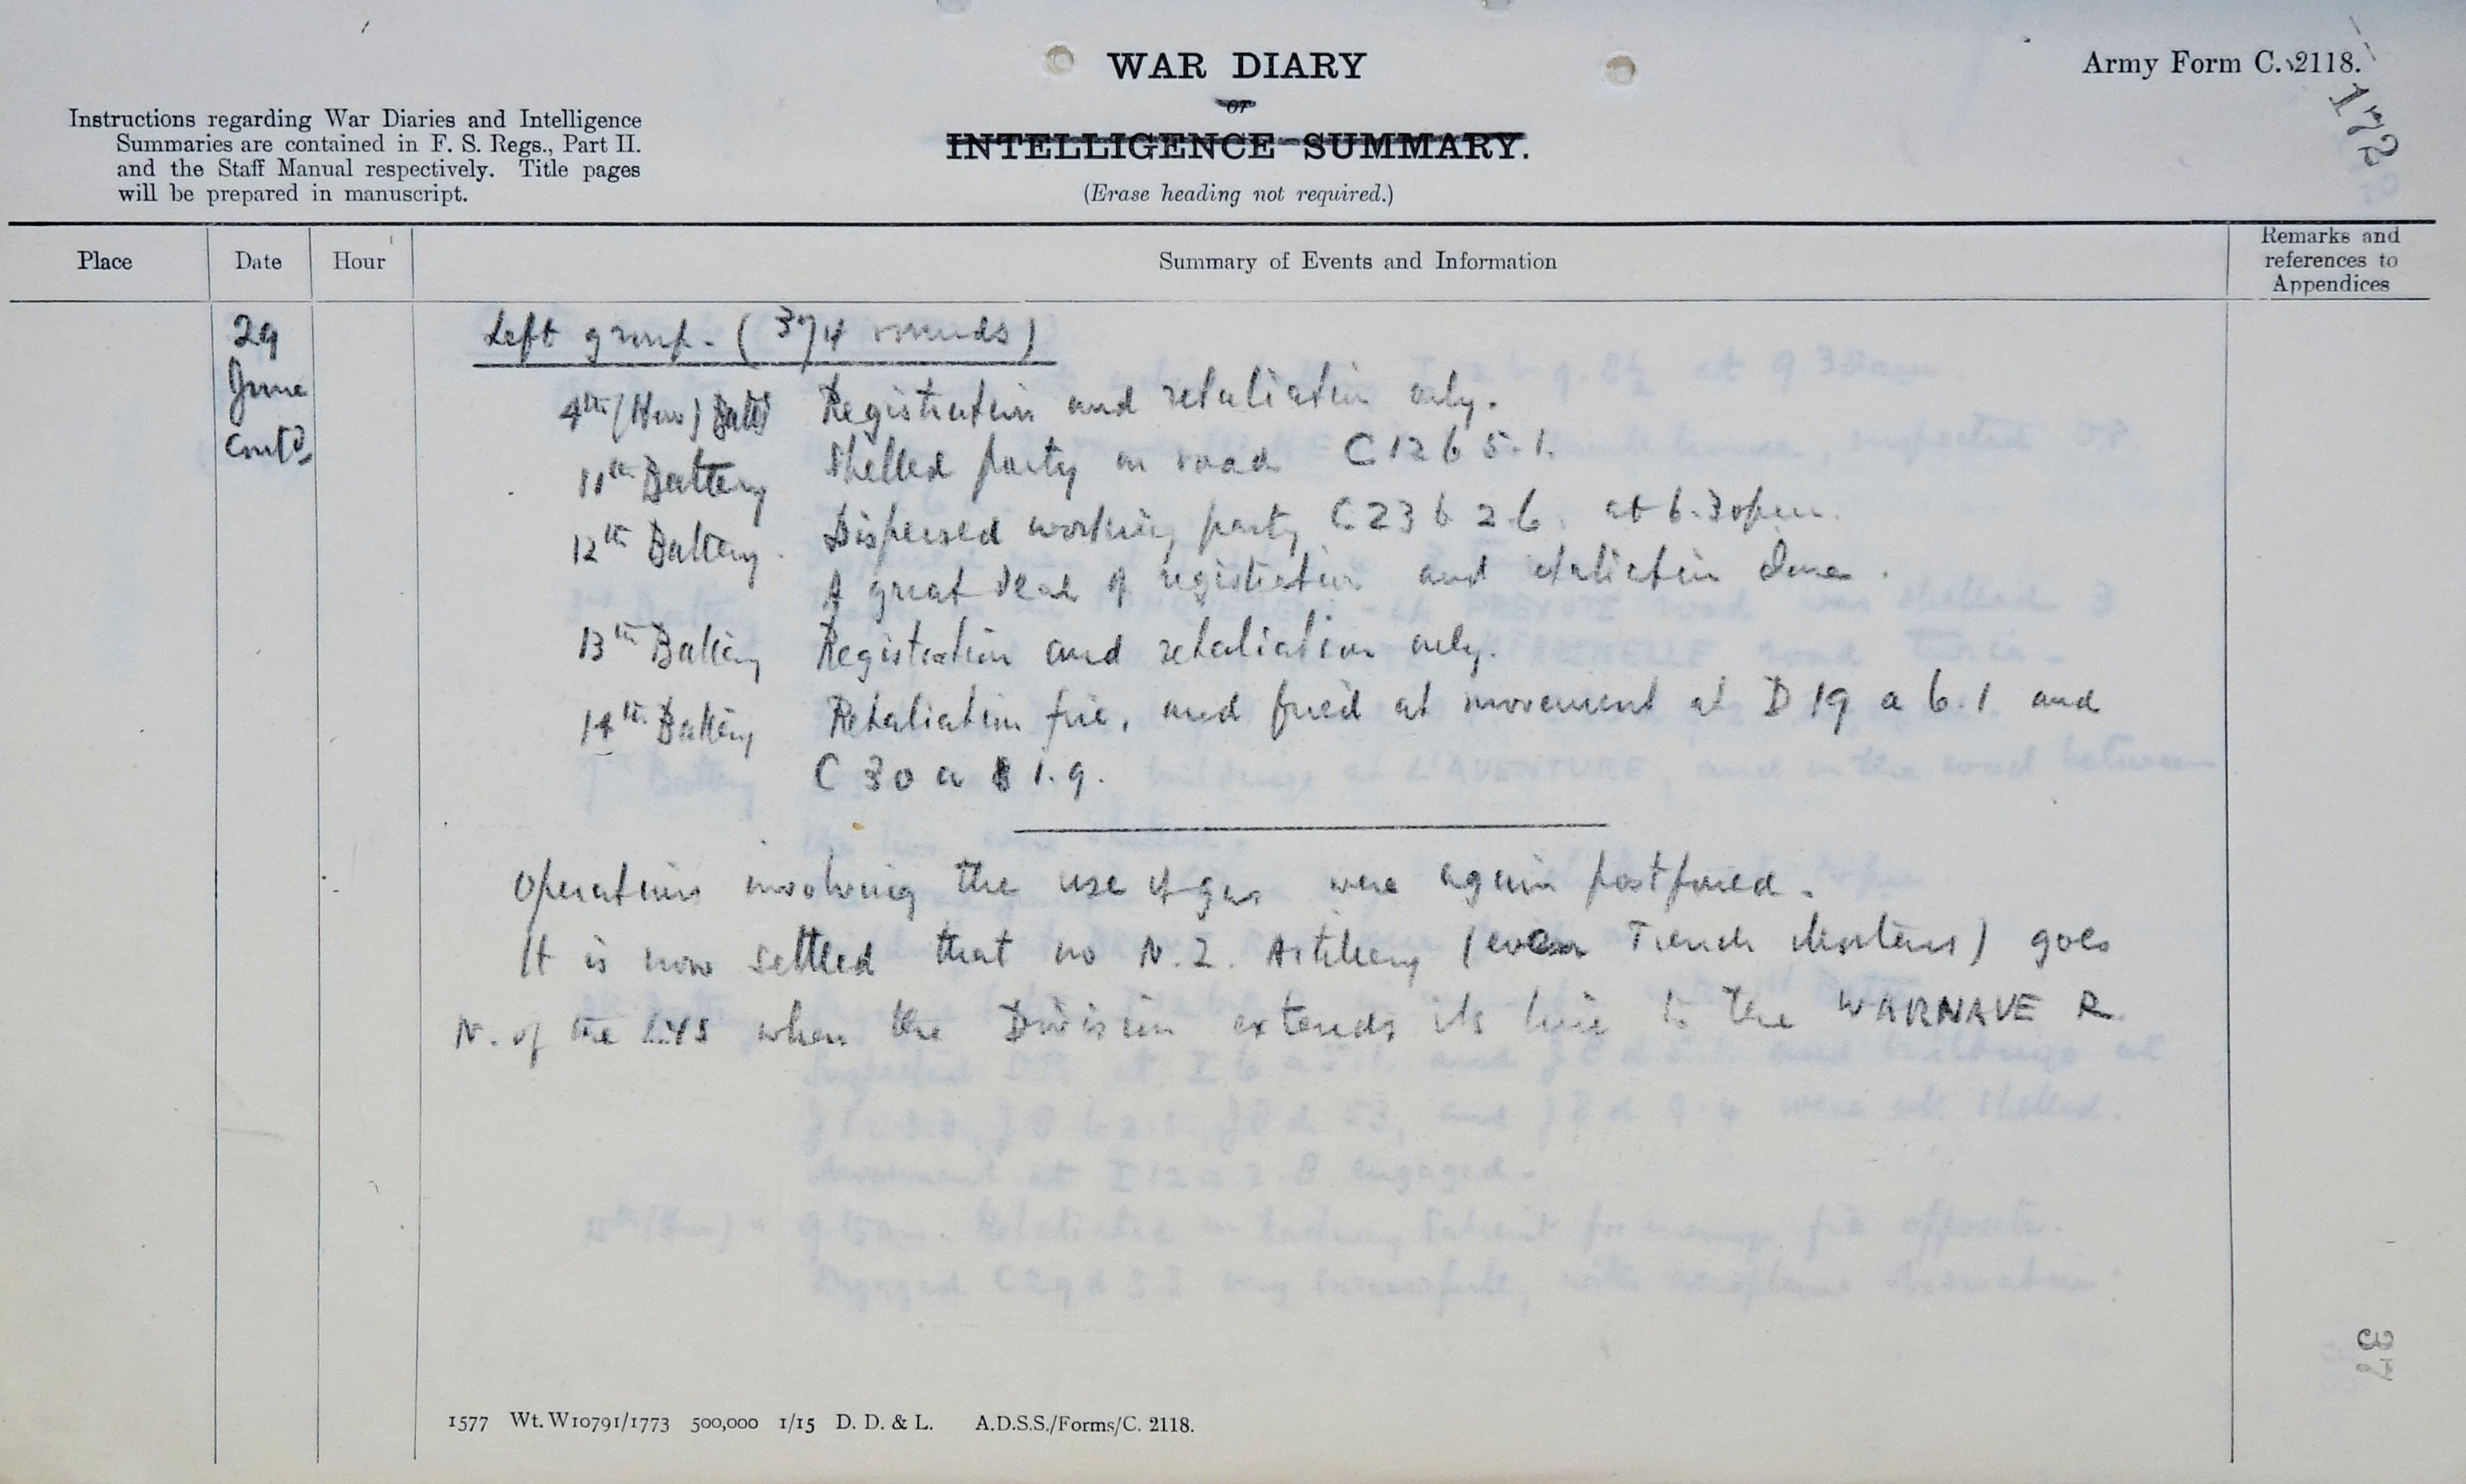 WAR DIARY
or
INTELLIGENCE SUMMARY.
(Erase heading not required.)
Army Form C. 2118.
172
Instructions regarding War Diaries and Intelligence
Summaries are contained in F. S. Regs., Part II.
and the Staff Manual respectively. Title pages
will be prepared in manuscript.
Place Date Hour Summary of Events and Information Remarks and references to Appendices
29 June Contd.
Left group. (374 rounds)
4th (How) Batty Registration and retaliation only.
11th Battery Shelled party on road C 12 b 5.1.
12th Battery. Dispersed working party C 23 b 2.6. at 6.30pm.
A great deal of registration and retaliation done.
13th Battery Registration and retaliation only.
14th Battery Retaliation fire, and fired at movement at D 19 a 6.1 and
C 30 a 1.9.
Operations involving the use of gas were again postponed.
It is now settled that no N.Z. Artillery (even Trench Mortars) goes
N. of the LYS when the Division extends its line to the WARNAVE R.
37
1577 Wt. W10791/1773 500,000 1/15 D. D. & L. A.D.S.S./Forms/C. 2118.